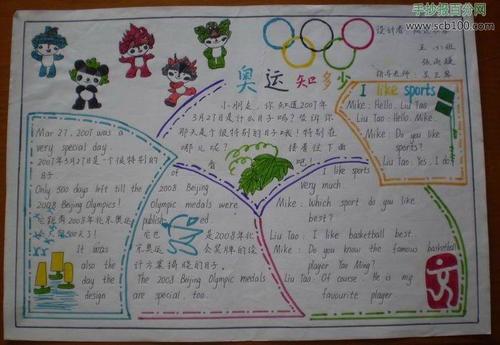 手抄报百分网
www.scb100.com
设计者:
王小组
张雨婕
指导老师:
奥运知多少
小朋友,你知道2007年
3月27日是什么日子吗?告诉你
那天是个很特别的日子哦!特别在
哪儿呢?接着往下面
看吧!
Mar 27, 2007 was a
very special day.
2007年3月27日是一个很特别的
日子
Only 500 days left till the
2008 Beijing Olympics!
它距离2008年北京奥运
会只有500天了!
It was
also the
day the
design
of the
2008 Beijing
Olympic medals
were
published.
它也是2008年北
京奥运会奖牌的设
计方案揭晓的日子。
The 2008 Beijing Olympic medals
are special, too.
I like sports
Mike: Hello, Liu Tao
Liu Tao: Hello, Mike.
Mike: Do you like
sports?
Liu Tao: Yes, I do.
I like sports
very much.
Mike: Which sport do you like
best?
Liu Tao: I like basketball best.
Mike: Do you know the famous basketball
player Yao Ming?
Liu Tao: Of course. He is my
favourite player